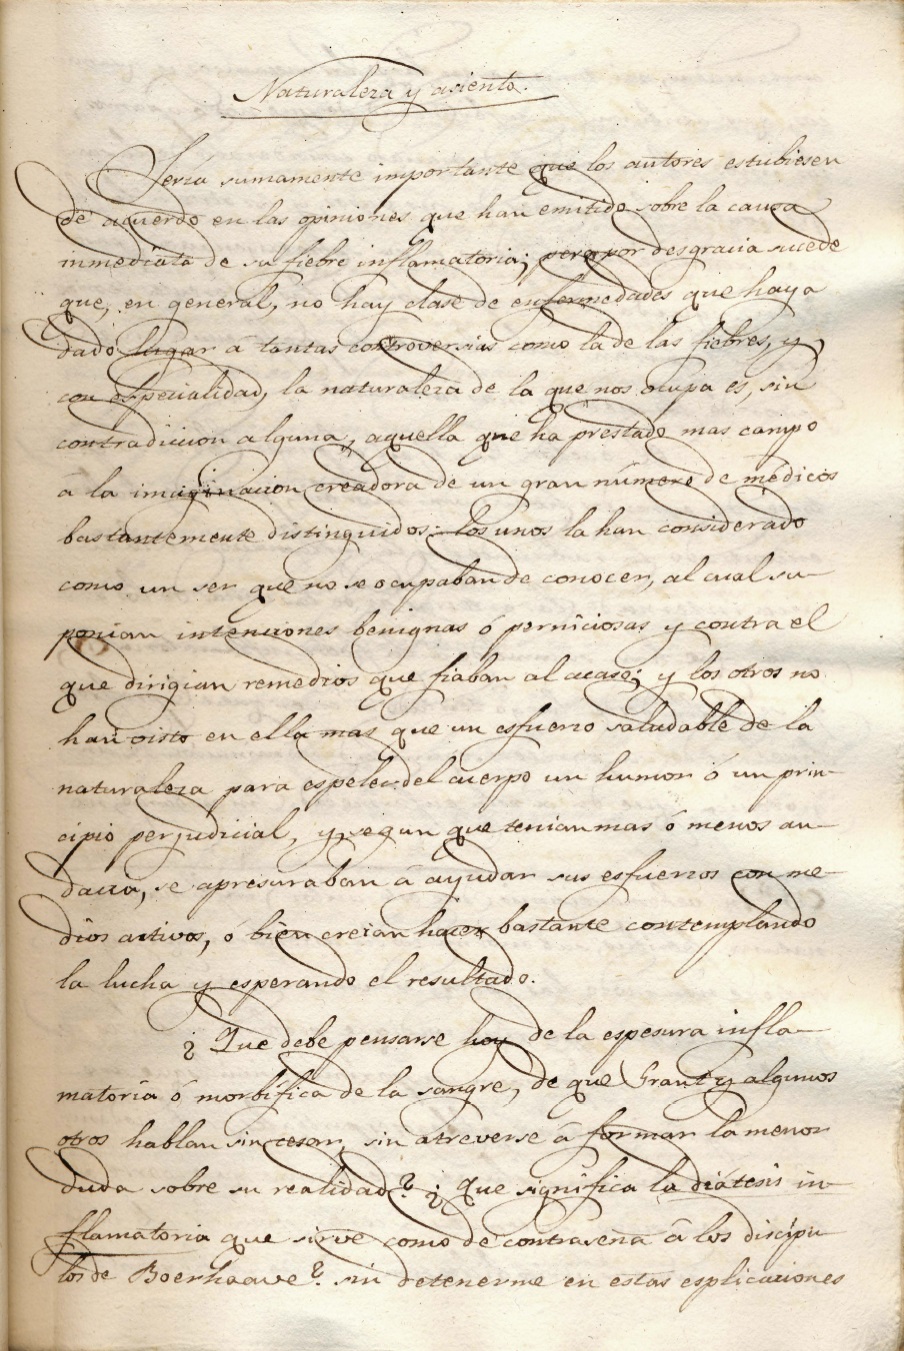 Naturaleza y asiento.
Sería sumamente importante que los autores estubiesen
de acuerdo en las opiniones que han emitido sobre la causa
inmediata de su fiebre inflamatoria; pero por desgracia sucede
que, en general, no hay clase de enfermedades que haya
dado lugar á tantas controversias como la de las fiebres, y,
con especialidad, la naturaleza de la que nos ocupa es, sin
contradiccion alguna, aquella que ha prestado mas campo
a la imaginacion creadora de un gran número de médicos
bastantemente distinguidos: los unos la han considerado
como un ser que no se ocupaban de conocer, al cual su-
ponian intenciones benignas ó perniciosas y contra el
que dirigian remedios que fiaban al acaso; y los otros no
han visto en ella mas que un esfuerzo saludable de la
naturaleza para espeler del cuerpo un humor ó un prin-
cipio perjudicial, y, segun que tenian mas ó menos au-
dacia, se apresuraban á ayudar sus esfuerzos con me-
dios activos, ó bien creian hacer bastante contemplando
la lucha y esperando el resultado.
¿Que debe pensarse hoy de la espesura infla-
matoria ó morbífica de la sangre, de que Grant y algunos
otros hablan sin cesar, sin atreverse á formar la menor
duda sobre su realidad? ¿que significa la diátesis in-
flamatoria que sirve como de contraseña á los discípu-
los de Boerhaave? sin detenerme en estas esplicaciones